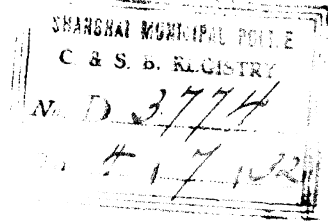 SHANGHAI MUNICIPAL POLICE
C. & S. B. REGISTRY
No. D 3774
4 / 7 / 32